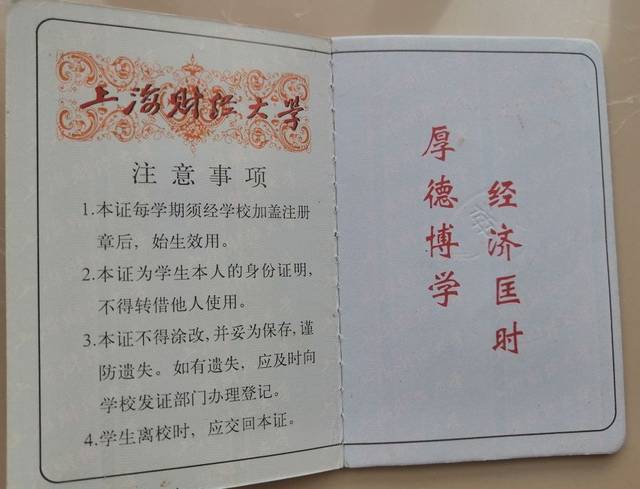 上海财经大学
注意事项
1.本证每学期须经学校加盖注册
章后，始生效用。
2.本证为学生本人的身份证明，
不得转借他人使用。
3.本证不得涂改，并妥为保存，谨
防遗失。如有遗失，应及时向
学校发证部门办理登记。
4.学生离校时，应交回本证。
厚德博学
经济匡时